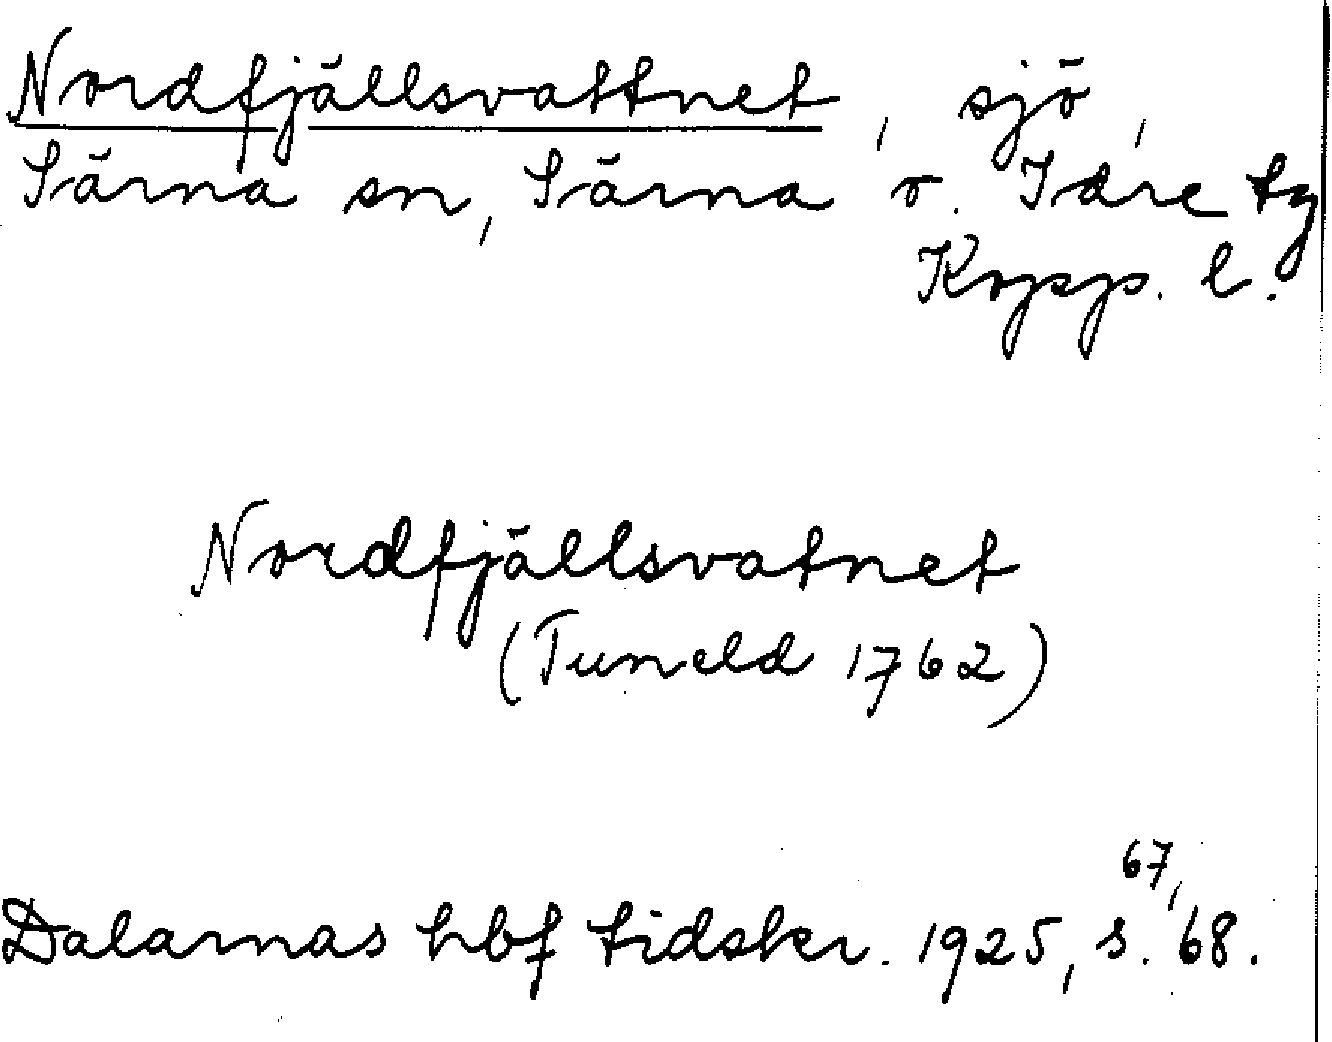 Nordfjällsvattnet, sjö,
Särna sn, Särna o. Idre tg
Kopp. l.
Nordfjällsvatnet
(Tuneld 1762)
Dalarnas hbf tidskr. 1925, s. 67, 68.